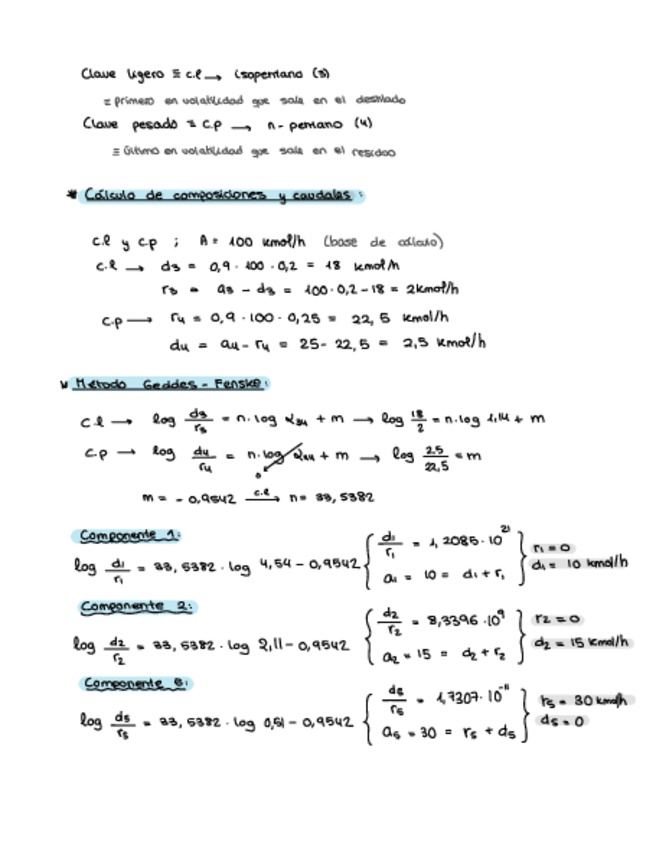 Clave ligero ≡ c.l → isopentano (3)
≡ primero en volatilidad que sale en el destilado
Clave pesado ≡ c.p → n-pentano (4)
≡ último en volatilidad que sale en el residuo
* Cálculo de composiciones y caudales:
c.l y c.p ; A = 100 kmol/h (base de cálculo)
c.l → d3 = 0,9 · 100 · 0,2 = 18 kmol/h
r3 = a3 - d3 = 100 · 0,2 - 18 = 2 kmol/h
c.p → r4 = 0,9 · 100 · 0,25 = 22,5 kmol/h
d4 = a4 - r4 = 25 - 22,5 = 2,5 kmol/h
Método Geddes - Fenske:
c.l → log d3/r3 = n · log α34 + m → log 18/2 = n · log 1,14 + m
c.p → log d4/r4 = n · log α44 + m → log 2,5/22,5 = m
0
m = - 0,9542 c.l → n = 33,5382
Componente 1:
log d1/r1 = 33,5382 · log 4,54 - 0,9542 { d1/r1 = 1,2085 · 10^21 } r1 = 0
a1 = 10 = d1 + r1 d1 = 10 kmol/h
Componente 2:
log d2/r2 = 33,5382 · log 2,11 - 0,9542 { d2/r2 = 8,3396 · 10^9 } r2 = 0
a2 = 15 = d2 + r2 d2 = 15 kmol/h
Componente 5:
log d5/r5 = 33,5382 · log 0,51 - 0,9542 { d5/r5 = 1,7307 · 10^-11 } r5 = 30 kmol/h
a5 = 30 = r5 + d5 d5 = 0